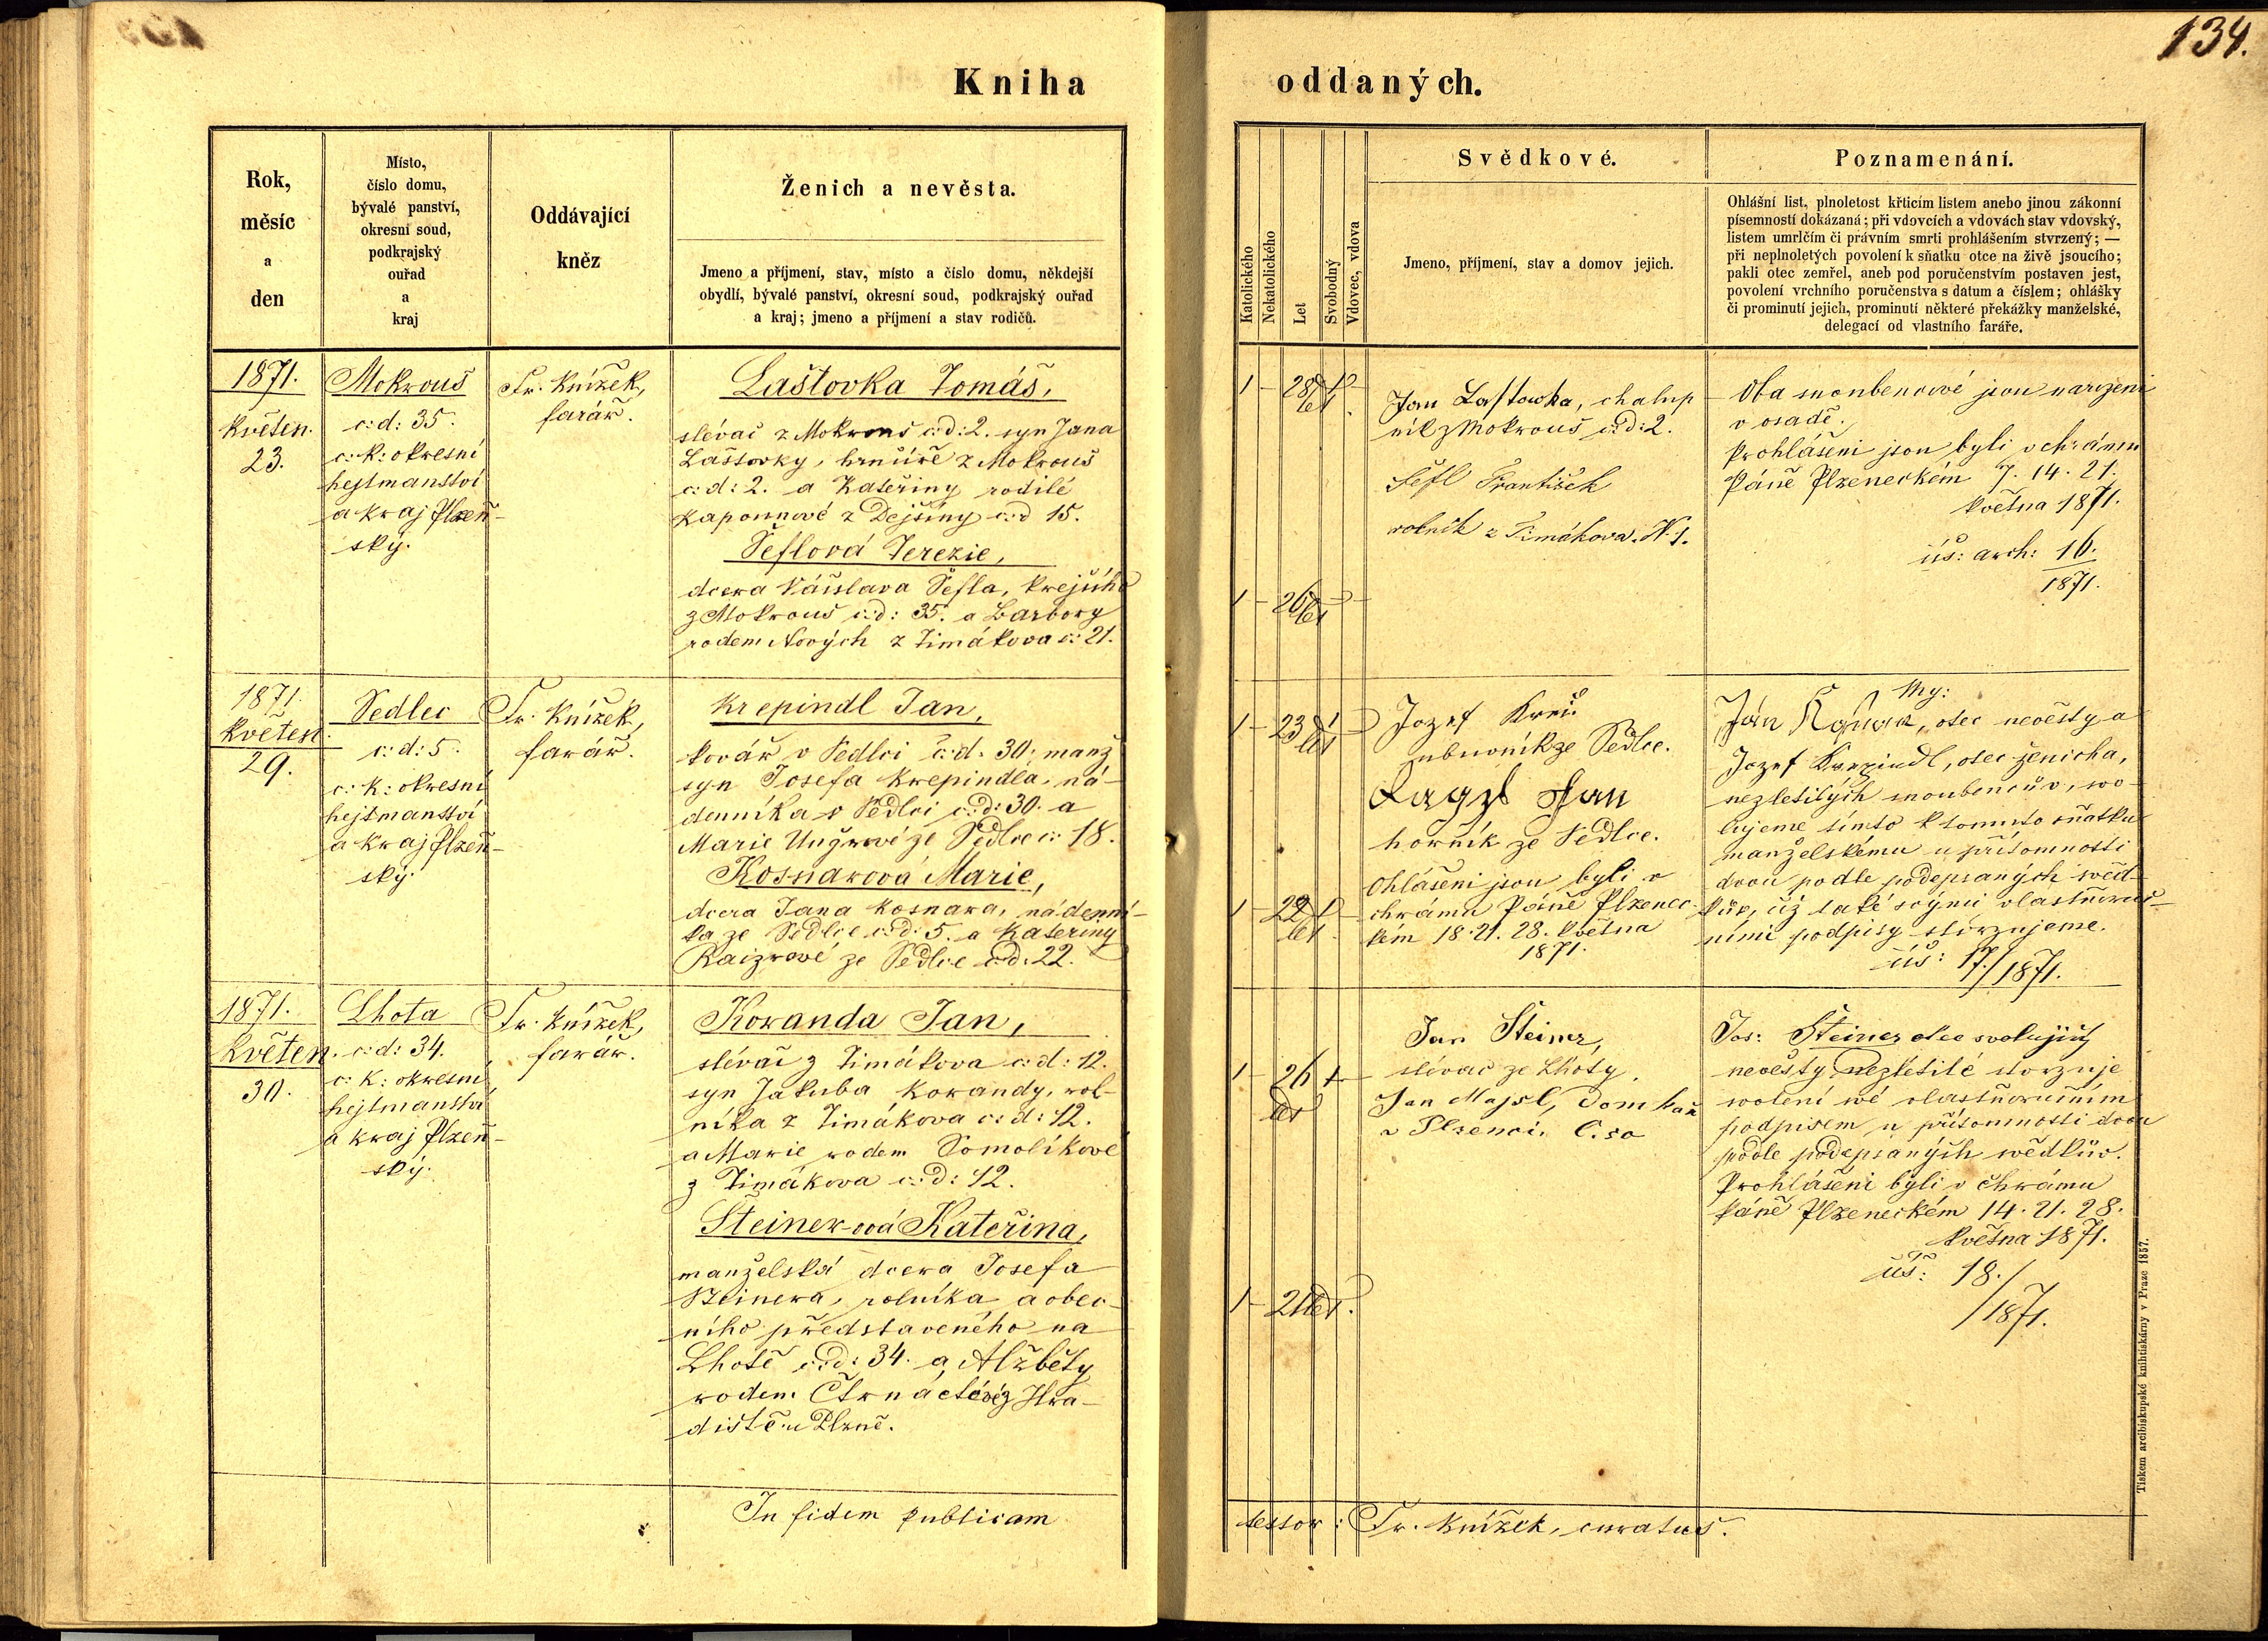 134.
Kniha
oddaných.
Rok,
měsíc
a
den
Místo,
číslo domu,
bývalé panství,
okresní soud,
podkrajský
ouřad
a
kraj
Oddávající
kněz
Ženich a nevěsta.
Jmeno a příjmení, stav, místo a číslo domu, někdejší
obydlí, bývalé panství, okresní soud, podkrajský ouřad
a kraj; jmeno a příjmení a stav rodičů.
Katolického
Nekatolického
Let
Svobodný
Vdovec, vdova
Svědkové.
Jmeno, příjmení, stav a domov jejich.
Poznamenání.
Ohlášní list, plnoletost křticím listem anebo jinou zákonní
písemností dokázaná; při vdovcích a vdovách stav vdovský,
listem umrlčím či právním smrti prohlášením stvrzený; —
při neplnoletých povolení k sňatku otce na živě jsoucího;
pakli otec zemřel, aneb pod poručenstvím postaven jest,
povolení vrchního poručenstva s datum a číslem; ohlášky
či prominutí jejich, prominutí některé překážky manželské,
delegací od vlastního faráře.
1871.
Květen.
23.
Mokrouš
č: d: 35.
c: k: okresní
hejtmanství
a kraj Plzeň-
ský.
Fr. Knížek,
farář.
Laštovka Tomáš,
slévač z Mokrouš č: d: 2. syn Jana
Laštovky, hrnčíře z Mokrouš
č: d: 2. a Kateřiny rodilé
z Dejšiny č: d 15.
Šeflová Terezie,
dcera Václava Šefla, krejčího
z Mokrouš č: d: 35. a Barbory
rodem Nových z Timákova č: 21.
1 28 let 1
1 26 let
Jan Lastowka, chalup
ník z Mokrouš č: d: 2.
Šefl František
rolník z Timákova. N. 1.
Oba snoubencové jsou narozeni
v osadě.
Prohlášeni jsou byli v chrámu
Páně Plzeneckém 7. 14. 21.
května 1871.
úš: arch: 16.
1871.
1871.
Květen.
29.
Sedlec
č: d: 5.
c: k: okresní
hejtmanství
a kraj Plzeň-
ský.
Fr. Knížek,
farář.
Krepindl Jan,
kovář v Sedlci č: d: 30, manž
syn Josefa Krepindla, ná-
denníka v Sedlci č: d: 30. a
Marie Ungrové ze Sedlce č: 18.
Kosnarová Marie,
dcera Jana Kosnara, nádenní-
ka ze Sedlce č: d: 5. a Kateřiny
Raizrové ze Sedlce č: d: 22.
1 23 let 1
1 22 let 1
Jozef
ze Sedlce.
Jan
horník ze Sedlce.
Ohlášeni jsou byli v
chrámu Páně Plzenec-
kém 18. 21. 28. května
1871.
My:
Ján otec nevěsty a
Jozef Krepindl, otec ženicha,
nezletilých snoubencův, svo-
lujeme tímto k tomuto sňatku
manželskému u přítomnosti
dvou podle podepsaných svěd-
kův, což také svými vlastnoruč-
ními podpisy stvrzujeme.
úš: 17./1871.
1871.
Květen.
30.
Lhota
č: d: 34.
c: k: okresní
hejtmanství
a kraj Plzeň-
ský.
Fr. Knížek,
farář.
Koranda Jan,
slévač z Timákova č: d: 12.
syn Jakuba Korandy, rol-
níka z Timákova č: d: 12.
a Marie rodem Somolíkové
z Timákova č: d: 42.
Šteinerová Kateřina,
manželská dcera Josefa
Šteinera, rolníka a obec-
ního představeného na
Lhotě č: d: 34. a Alžběty
rodem Čtrnáctévé z Hra-
diště u Plzně.
1 26 let 1
1 21 let.
Jan Šteiner,
slévač ze Lhoty.
Jan Majsl, Domkař
v Plzenci.
Jos: Šteiner otec svolující
nevěsty nezletilé stvrzuje
svolení své vlastnoručním
podpisem u přítomnosti dvou
podle podepsaných svědkův.
Prohlášeni byli v chrámu
Páně Plzeneckém 14. 21. 28.
května 1871.
úš: 18./
/1871.
In fidem publicam
testor: Fr. Knížek, curatus.
Tiskem arcibiskupské knihtiskárny v Praze 1857.